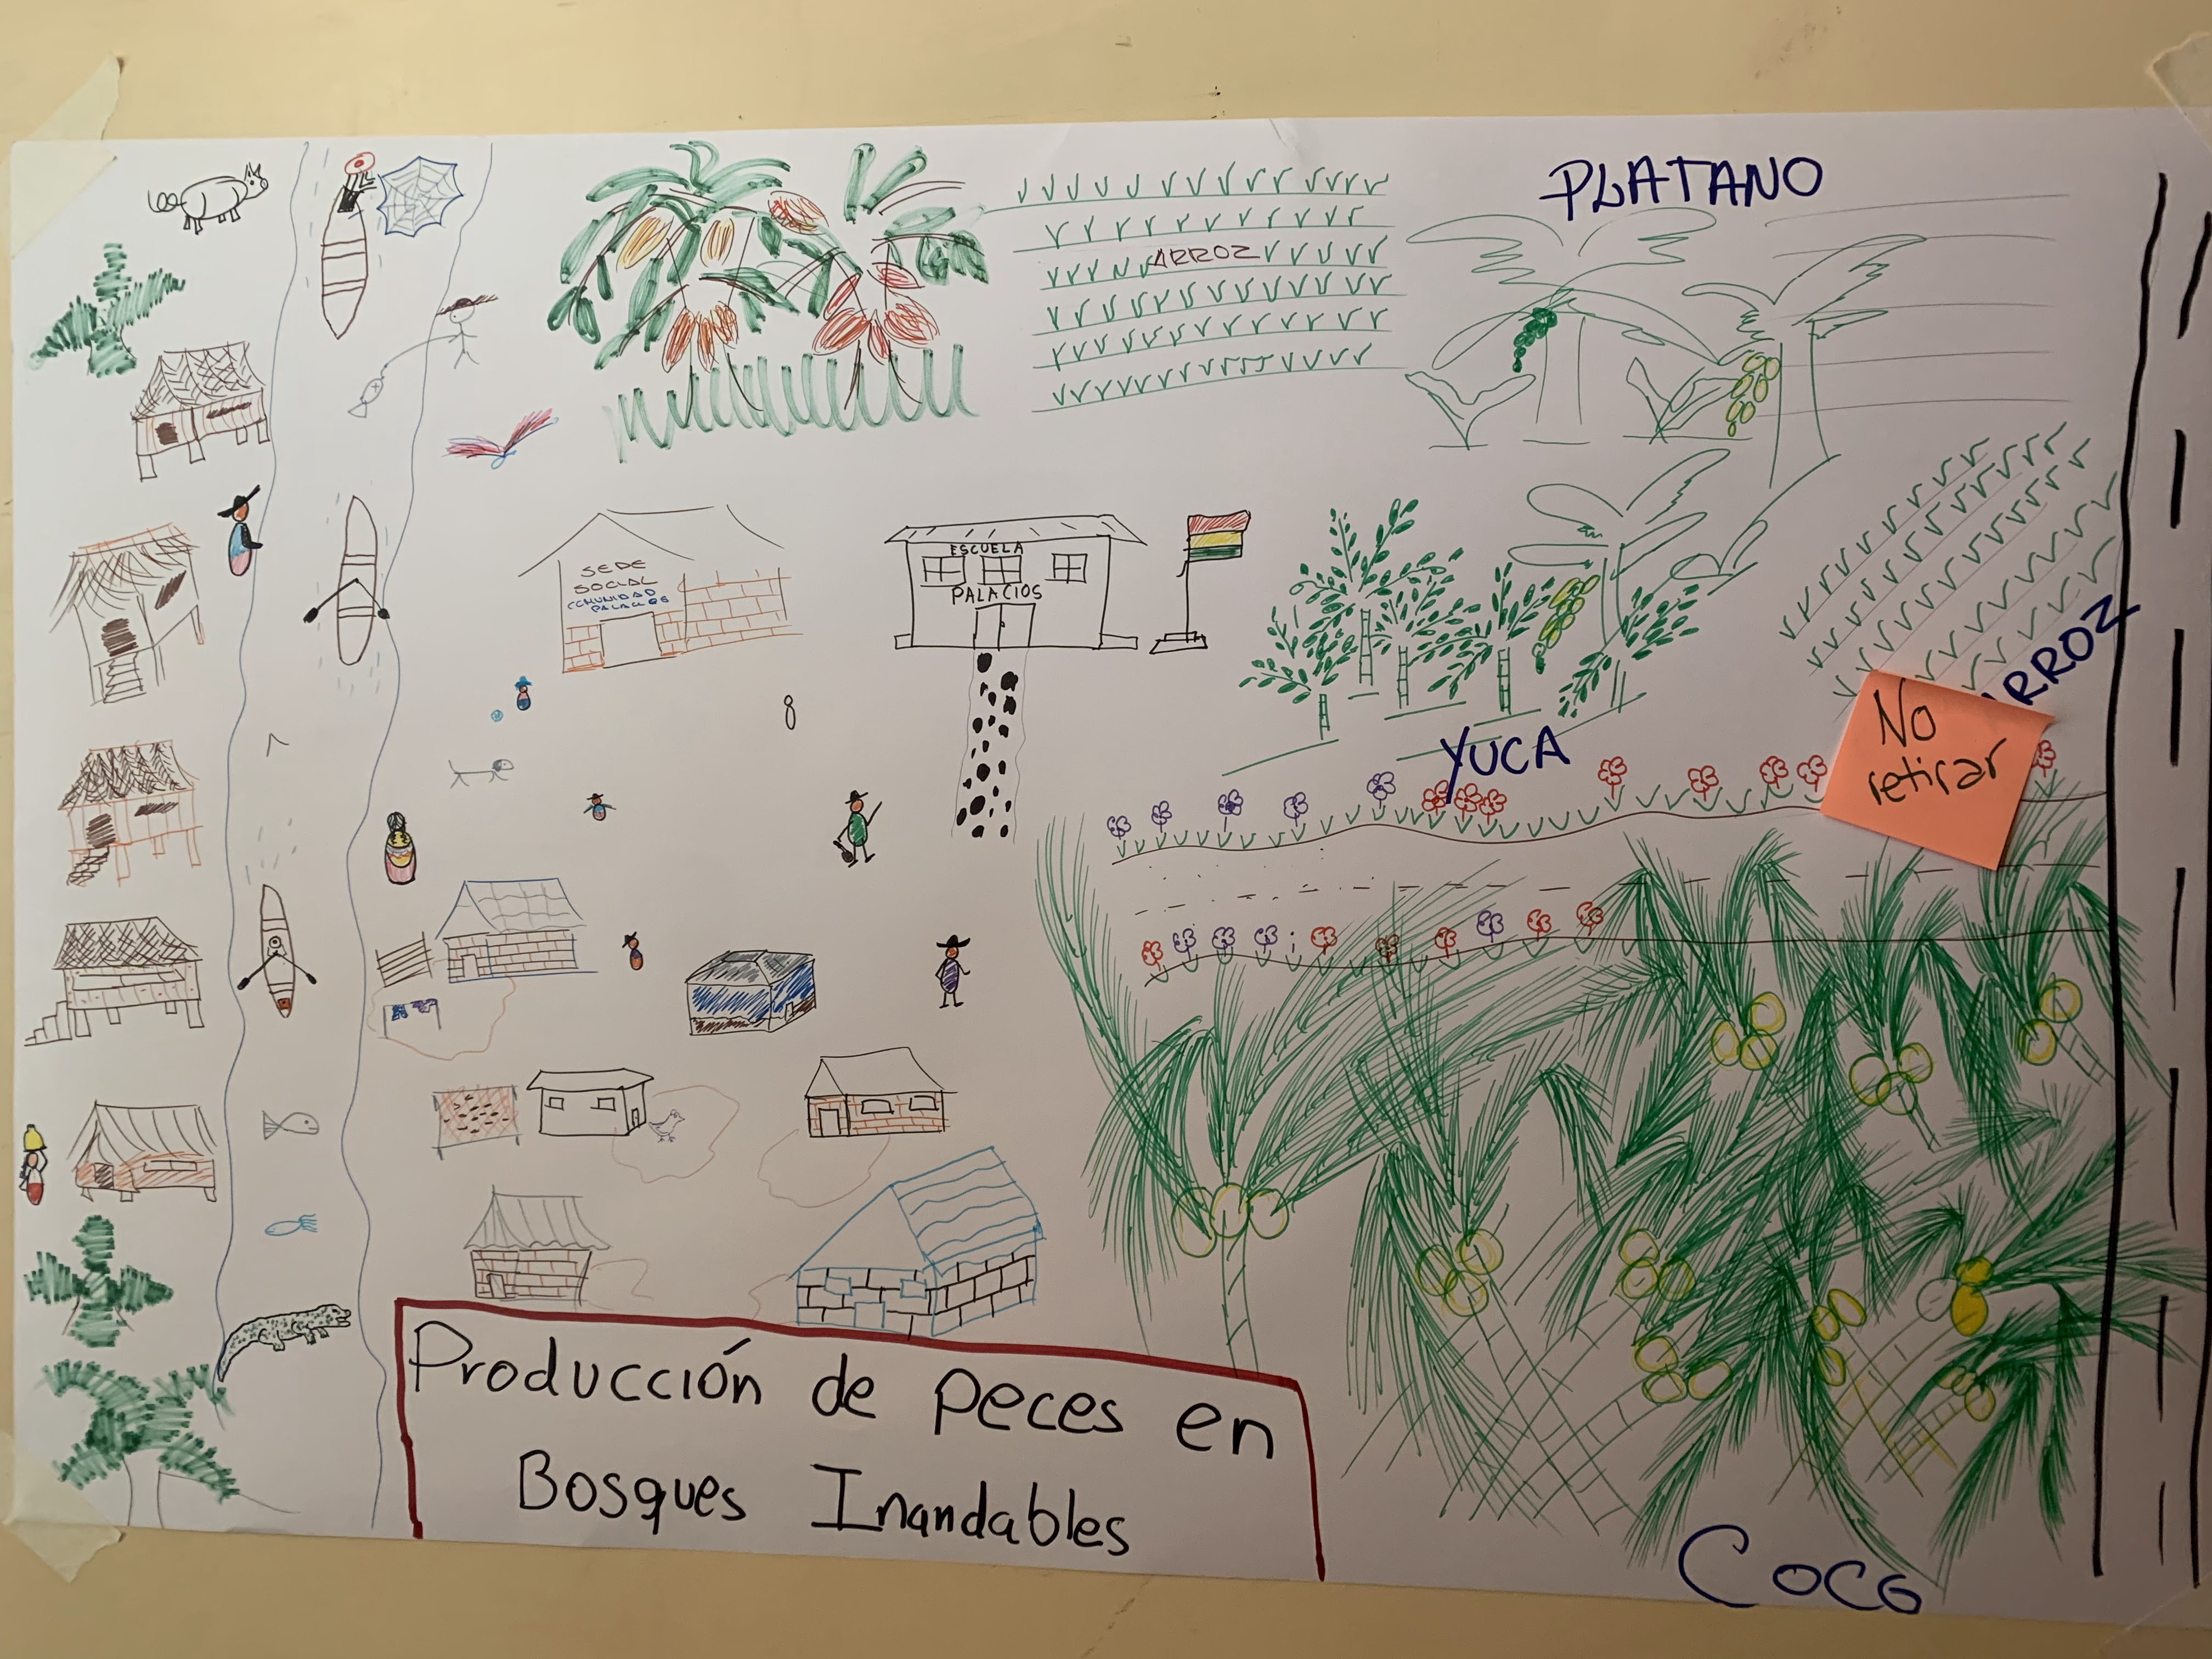 PLATANO
ARROZ
SEDE
SOCIAL
COMUNIDAD
PALACIOS
ESCUELA
PALACIOS
ARROZ
No
retirar
YUCA
Producción de peces en
Bosques Inandables
COCO